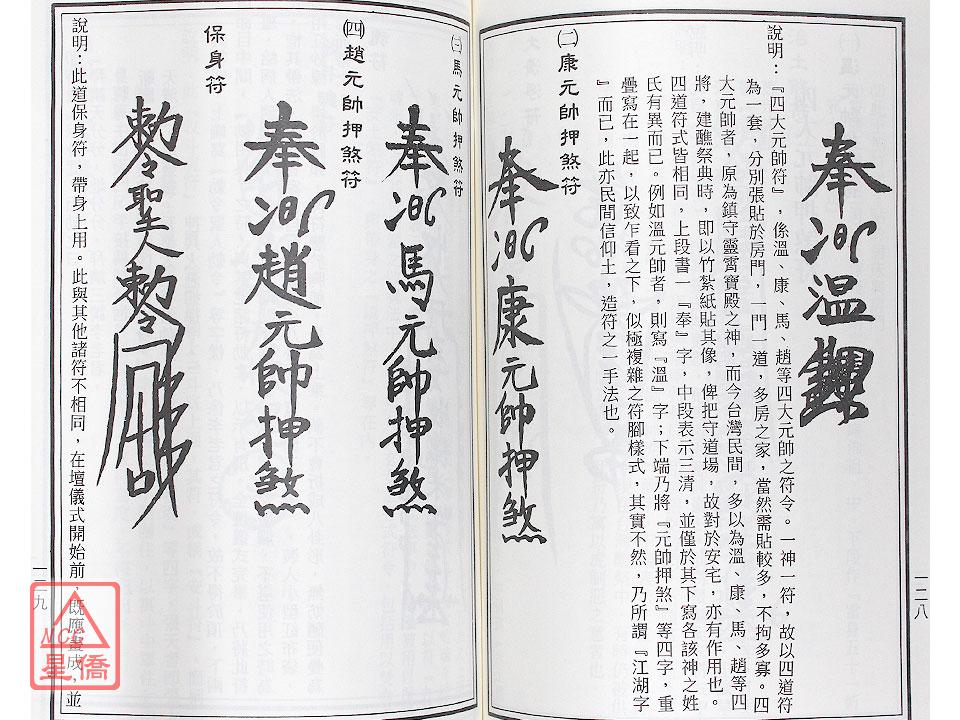 奉
溫
說明：『四大元帥符』，係溫、康、馬、趙等四大元帥之符令。一神一符，故以四道符
為一套，分別張貼於房門，一門一道，多房之家，當然需貼較多，不拘多寡。四
大元帥者，原為鎮守靈霄寶殿之神，而今台灣民間，多以為溫、康、馬、趙等四
將，建醮祭典時，即以竹紮紙貼其像，俾把守道場，故對於安宅，亦有作用也。
四道符式皆相同，上段書一『奉』字，中段表示三清，並僅於其下寫各該神之姓
氏有異而已。例如溫元帥者，則寫『溫』字；下端乃將『元帥押煞』等四字，重
疊寫在一起，以致乍看之下，似極複雜之符腳樣式，其實不然，乃所謂『江湖字
』而已，此亦民間信仰土，造符之一手法也。
㈡康元帥押煞符
奉
康元帥押煞
一二八
㈢馬元帥押煞符
奉
馬元帥押煞
㈣趙元帥押煞符
奉
趙元帥押煞
保身符
勅令聖人勅令
說明：此道保身符，帶身上用。此與其他諸符不相同，在壇儀式開始前，既應畫成，並
一二九
NCC
星僑